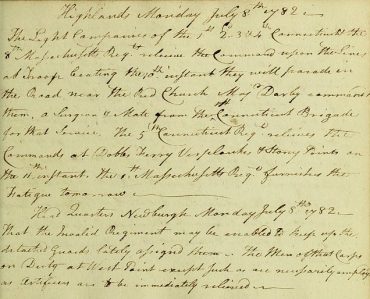 Highlands Monday July 8th 1782
The Light Companies of the 1st 2d 3 & 4th Connecticut & the
8th Massachusetts Regts relieve the Command upon the Lines
at Troop Beating the 10th instant they will parade in
the Road near the Red Church Majr Darby commands
them, a Surgeon & Mate from the Connecticut Brigade
for that Service. The 5th Connecticut Regt relieves the
Commands at Dobbs Ferry Verplanks & Stony Points on
the 11th instant. the Massachusetts Regt furnishes the
Fatigue tomorrow
Head Quarters Newburgh Monday July 8th 1782
That the Invalid Regiment may be enabled to keep up the
detached Guards lately assigned them — the Men of that Corps
on Duty at West Point except such as are necessarily employ
as Artificers are to be immediately relieved